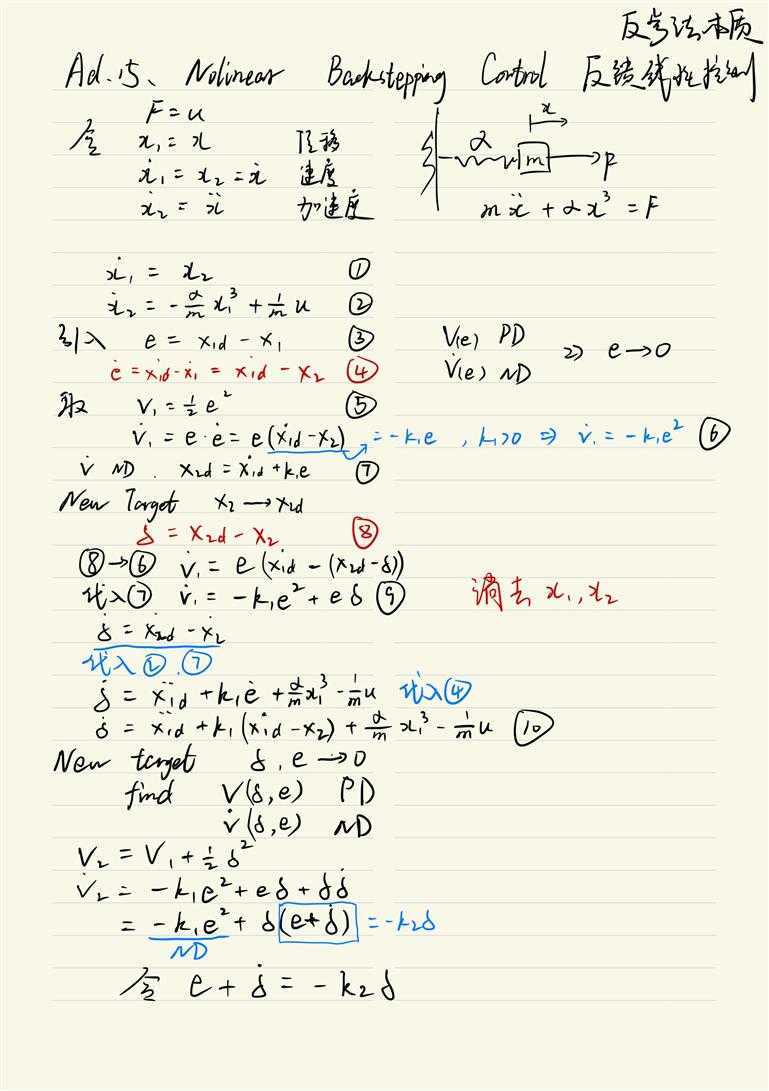 反步法本质
Ad.15、Nolinear Backstepping Control 反馈线性控制
F = u
令 x₁ = x 位移
ẋ₁ = x₂ = ẋ 速度
ẋ₂ = ẍ 加速度
x
α m F
mẍ + αx³ = F
ẋ₁ = x₂ ①
ẋ₂ = -α/m x₁³ + 1/m u ②
引入 e = x₁d - x₁ ③
ė = ẋ₁d - ẋ₁ = ẋ₁d - x₂ ④
V(e) PD
V̇(e) ND ⇒ e → 0
取 V₁ = ½ e² ⑤
V̇₁ = e·ė = e(ẋ₁d - x₂) = -k₁e , k₁>0 ⇒ V̇₁ = -k₁e² ⑥
V̇ ND . x₂d = ẋ₁d + k₁e ⑦
New Target x₂ → x₂d
δ = x₂d - x₂ ⑧
⑧→⑥ V̇₁ = e(ẋ₁d - (x₂d - δ))
代入⑦ V̇₁ = -k₁e² + eδ ⑨
消去 x₁, x₂
δ̇ = ẋ₂d - ẋ₂
代入 ②.⑦
δ̇ = ẍ₁d + k₁ė + α/m x₁³ - 1/m u 代入④
δ̇ = ẍ₁d + k₁(ẋ₁d - x₂) + α/m x₁³ - 1/m u ⑩
New target δ, e → 0
find V(δ,e) PD
V̇(δ,e) ND
V₂ = V₁ + ½ δ²
V̇₂ = -k₁e² + eδ + δδ̇
= -k₁e² + δ(e+δ̇) = -k₂δ
ND
令 e + δ̇ = -k₂δ